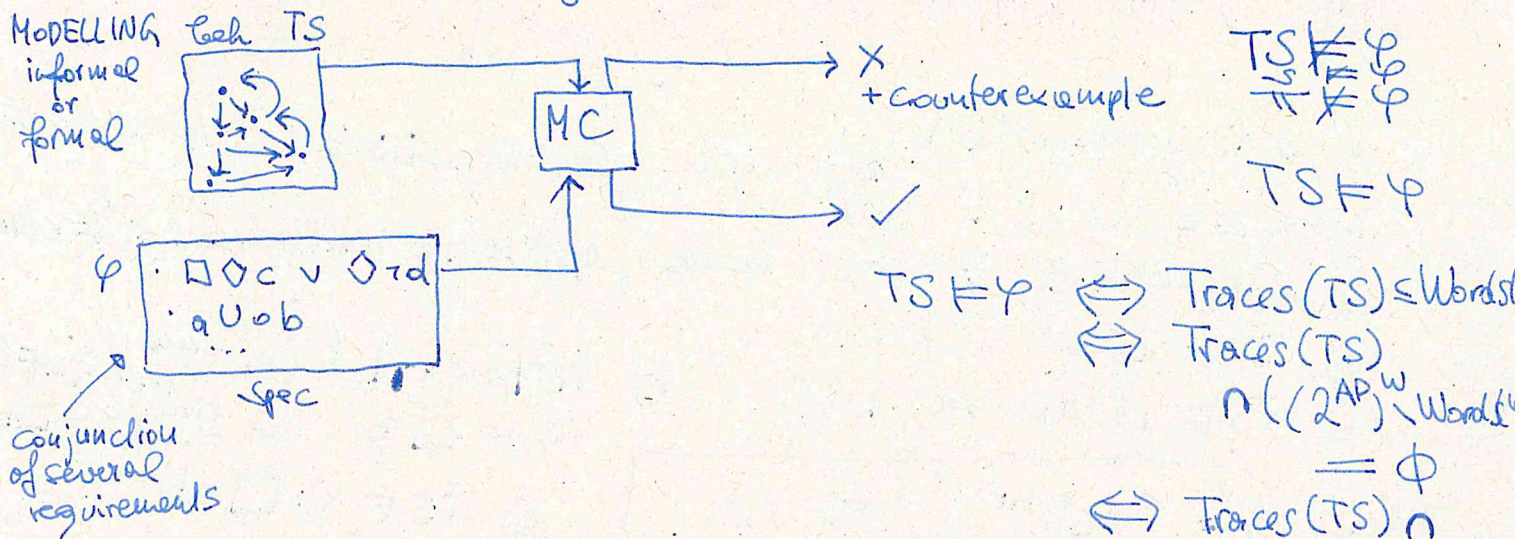 MODELLING
informal
or
formal
beh TS
MC
X
+ counterexample
TS ⊭ φ
π ⊭ φ
✓
TS ⊨ φ
φ
· □◇c ∨ ◇¬d
· a U ○b
...
Spec
conjunction
of several
requirements
TS ⊨ φ ⇔ Traces(TS) ⊆ Words(
⇔ Traces(TS)
∩ ((2^AP)^ω \ Words(
= ∅
⇔ Traces(TS) ∩